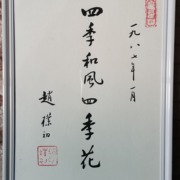 一九八七年一月
四季和風四季花
趙樸初